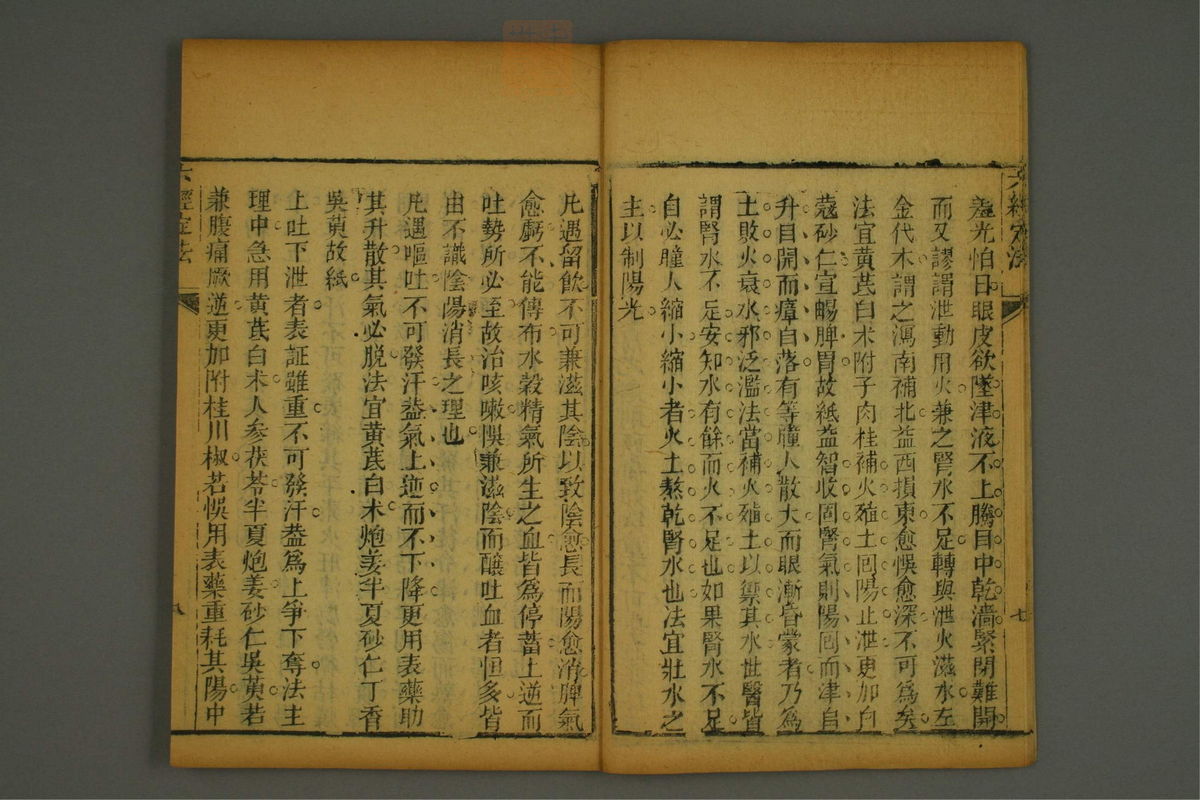 六經定法
羞光怕日眼皮欲墜津液不上騰目中乾濇緊閉難開
而又謬謂泄動用火兼之腎水不足轉與泄火滋水左
金代木謂之瀉南補北益西損東愈悞愈深不可為矣
法宜黃茋白术附子肉桂補火殖土回陽止泄更加白
蔻砂仁宣暢脾胃故紙益智收固腎氣則陽回而津自
升目開而瘴自落有等瞳人散大而眼漸昏蒙者乃為
土敗火衰水邪泛濫法當補火殖土以禦其水世醫皆
謂腎水不足安知水有餘而火不足也如果腎水不足
自必瞳人縮小縮小者火土熬乾腎水也法宜壯水之
主以制陽光
七
凡遇留飲不可兼滋其陰以致陰愈長而陽愈消脾氣
愈虧不能傳布水穀精氣所生之血皆為停蓄上逆而
吐勢所必至故治咳嗽悞兼滋陰而釀吐血者恒多皆
由不識陰陽消長之理也
凡遇嘔吐不可發汗葢氣上逆而不下降更用表藥助
其升散其氣必脫法宜黃茋白术炮姜半夏砂仁丁香
吳萸故紙
上吐下泄者表証雖重不可發汗葢為上爭下奪法主
理中急用黃茋白术人參茯苓半夏炮姜砂仁吳萸若
兼腹痛厥逆更加附桂川椒若悞用表藥重耗其陽中
六經定法
八